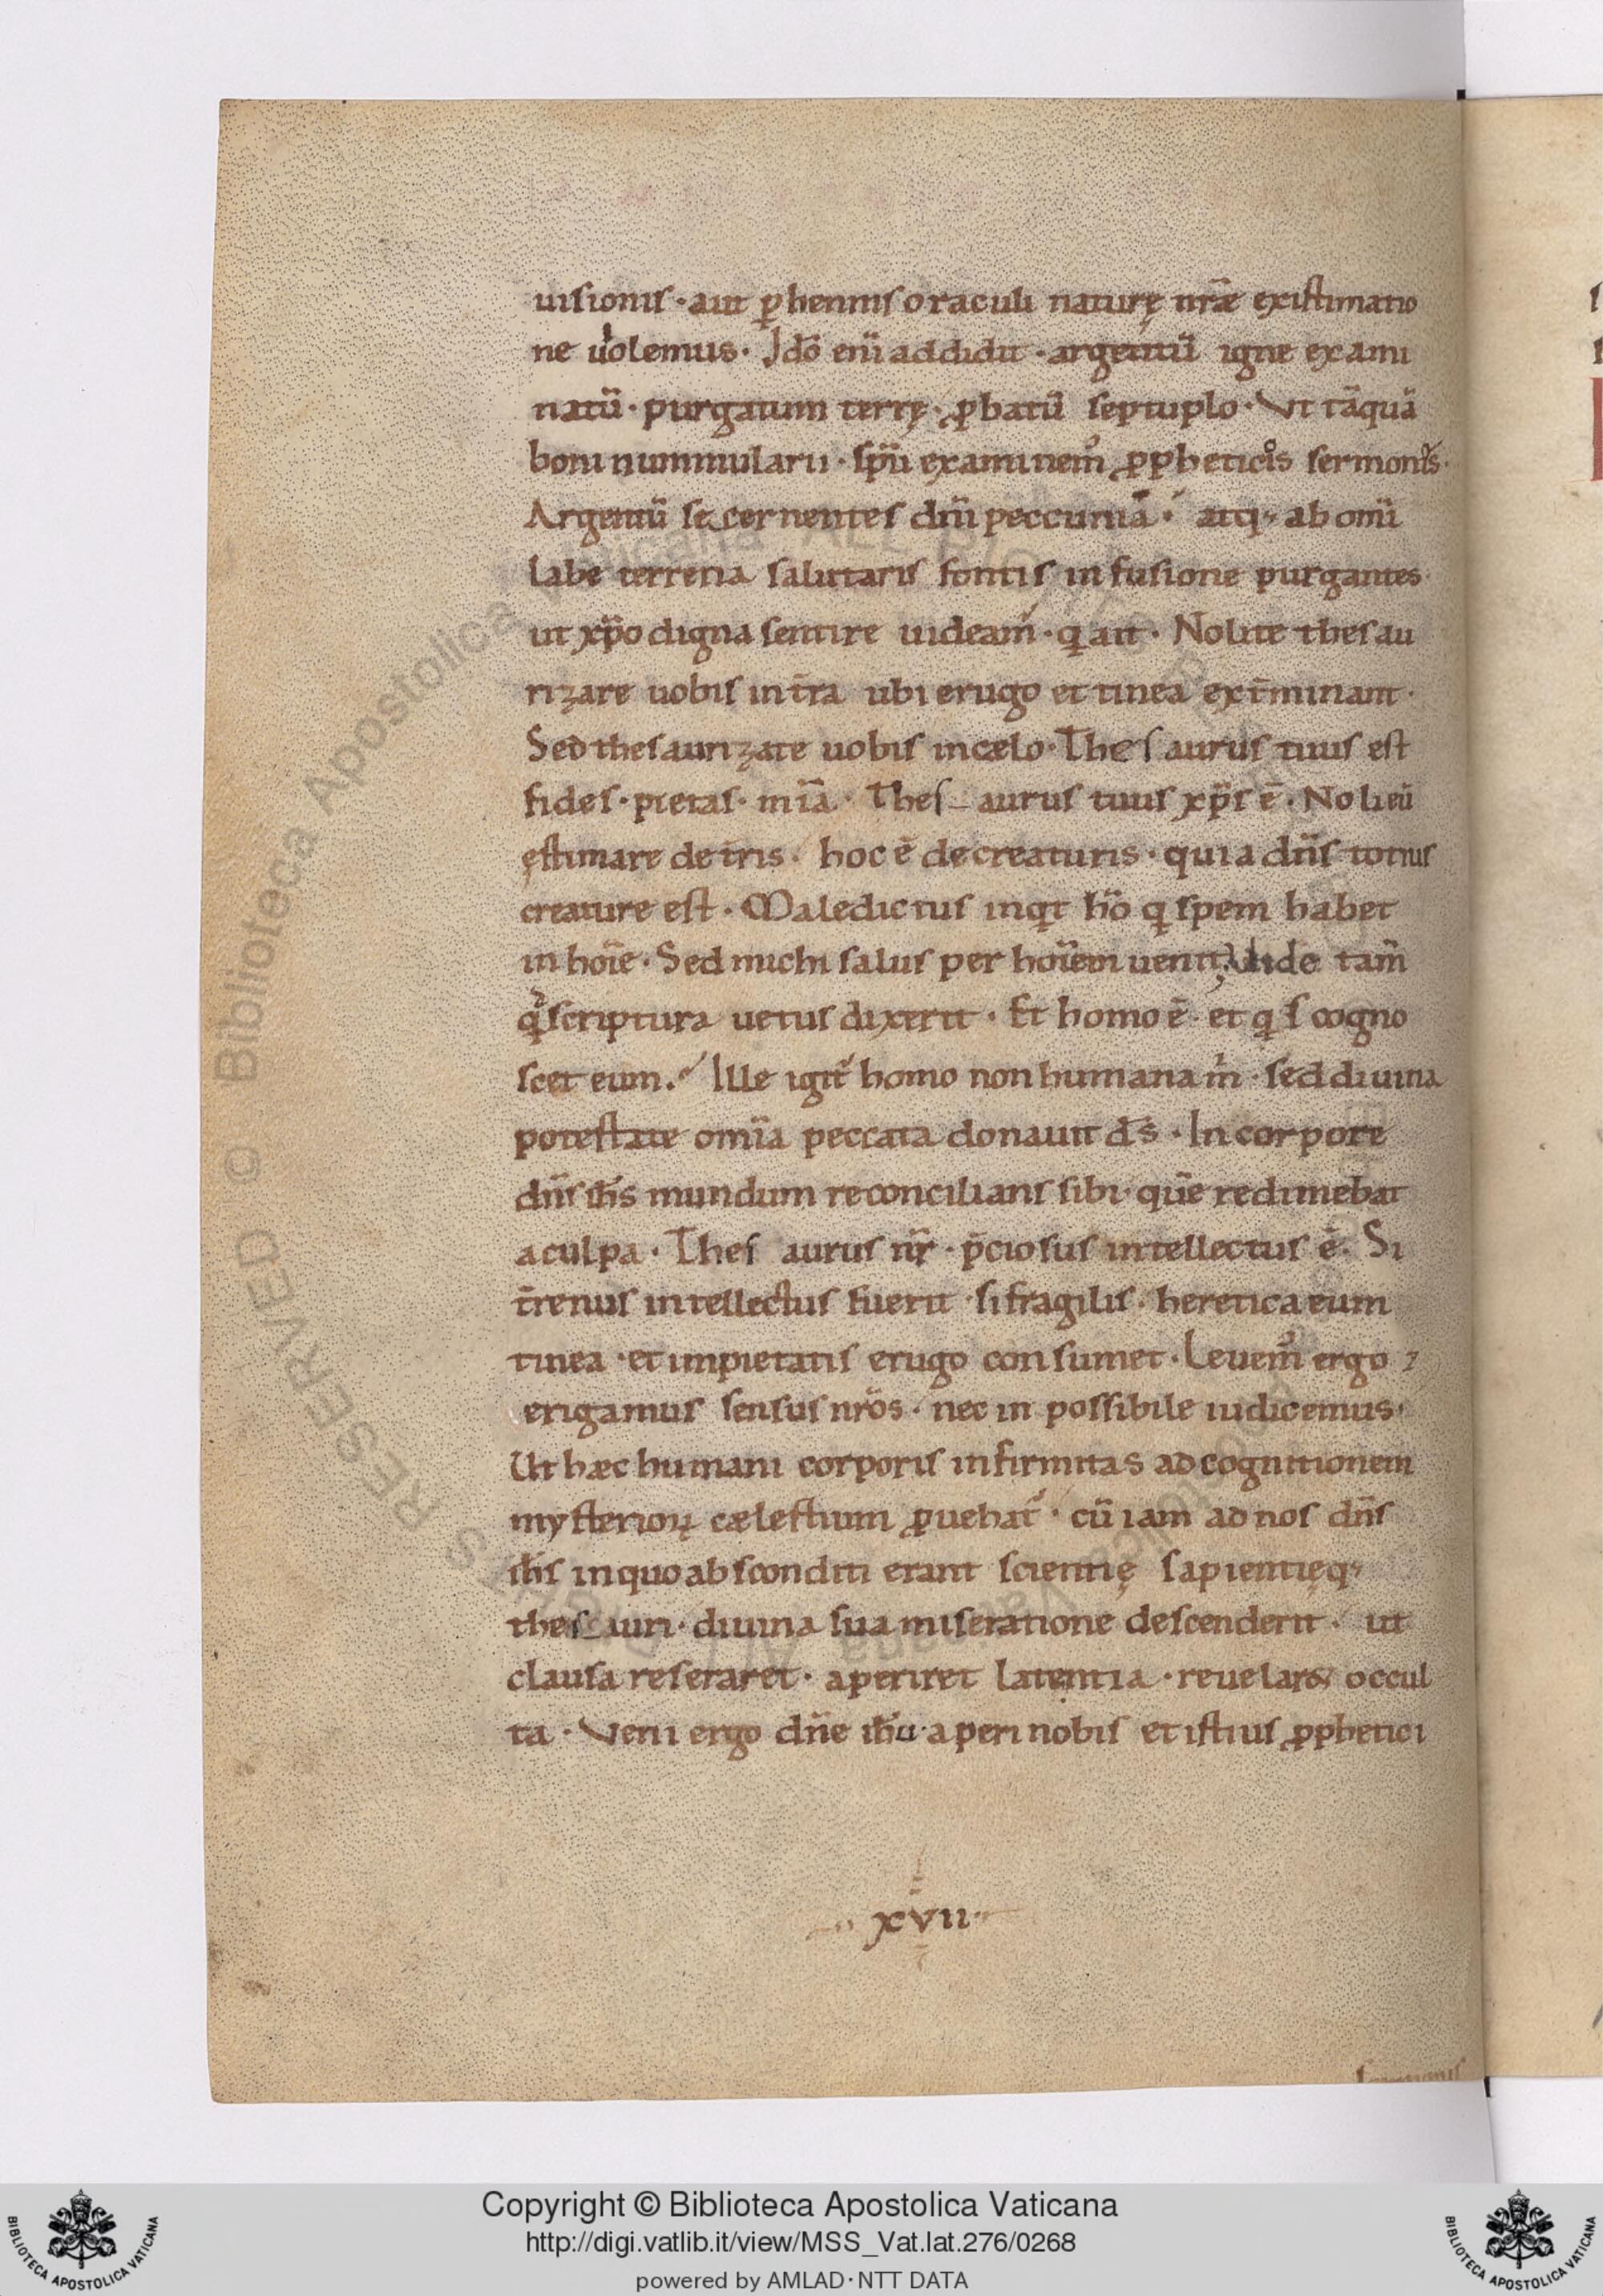 uisionis · aut ꝑhennis oraculi naturę nr̄æ existimatio
ne uolemus · Idō eni̅ addidit · argentū igne exami
natū · purgatum terrę · ꝓbatū septuplo · Vt tāquā
boni nummularii · sp̄u examinem᷒ ꝓpheticos sermones ·
Argentū secernentes dn̄i peccuniā · atq; ab omi̅
labe terrena salutaris fontis infusione purgantes ·
ut xp̄o digna sentire uideam᷒ · q̄ ait · Nolite thesau
rizare uobis in tr̄a ubi erugo et tinea ext̄minant ·
Sed thesaurizate uobis in cælo · Thesaurus tuus est
fides · pietas · mi̅a · Thes_aurus tuus xp̄s ē · Noli eū
ęstimare de tr̄is · hoc ē de creaturis · quia dn̄s totius
creature est · Maledictus inqt hō q spem habet
in hoi̅e · Sed michi salus per hoi̅em uenit; Vide tam̄
qd scriptura uetus dixerit · Et homo ē · et qs cogno
scet eum · Ille igit᷒ homo non humana m̄ · sed diuina
potestate omi̅a peccata donauit ds̄ · In corpore
dn̄s ih̄s mundum reconcilians sibi · quē redimebat
a culpa · Thes aurus nr̄ · p̄ciosus intellectus ē · Si
tr̄enus intellectus fuerit · si fragilis · heretica eum
tinea · et impietatis erugo consumet · Leuem᷒ ergo ⁊
erigamus sensus nr̄os · nec in possibile iudicemus ·
Ut hæc humani corporis infirmitas ad cognitionem
mysterioꝝ cælestium ꝓuehat᷒ · cū iam ad nos dn̄s
ih̄s in quo absconditi erant scientię sapientięq;
thes_auri · diuina sua miseratione descenderit · ut
clausa reseraret · aperiret latentia · reuelar& occul
ta · Veni ergo dn̄e ih̄u · aperi nobis et istius ꝓphetici
xvii
Biblioteca Apostolica Vaticana ALL RIGHTS RESERVED ©
Copyright © Biblioteca Apostolica Vaticana
http://digi.vatlib.it/view/MSS_Vat.lat.276/0268
powered by AMLAD·NTT DATA
BIBLIOTECA APOSTOLICA VATICANA
BIBLIOTECA APOSTOLICA VATICANA